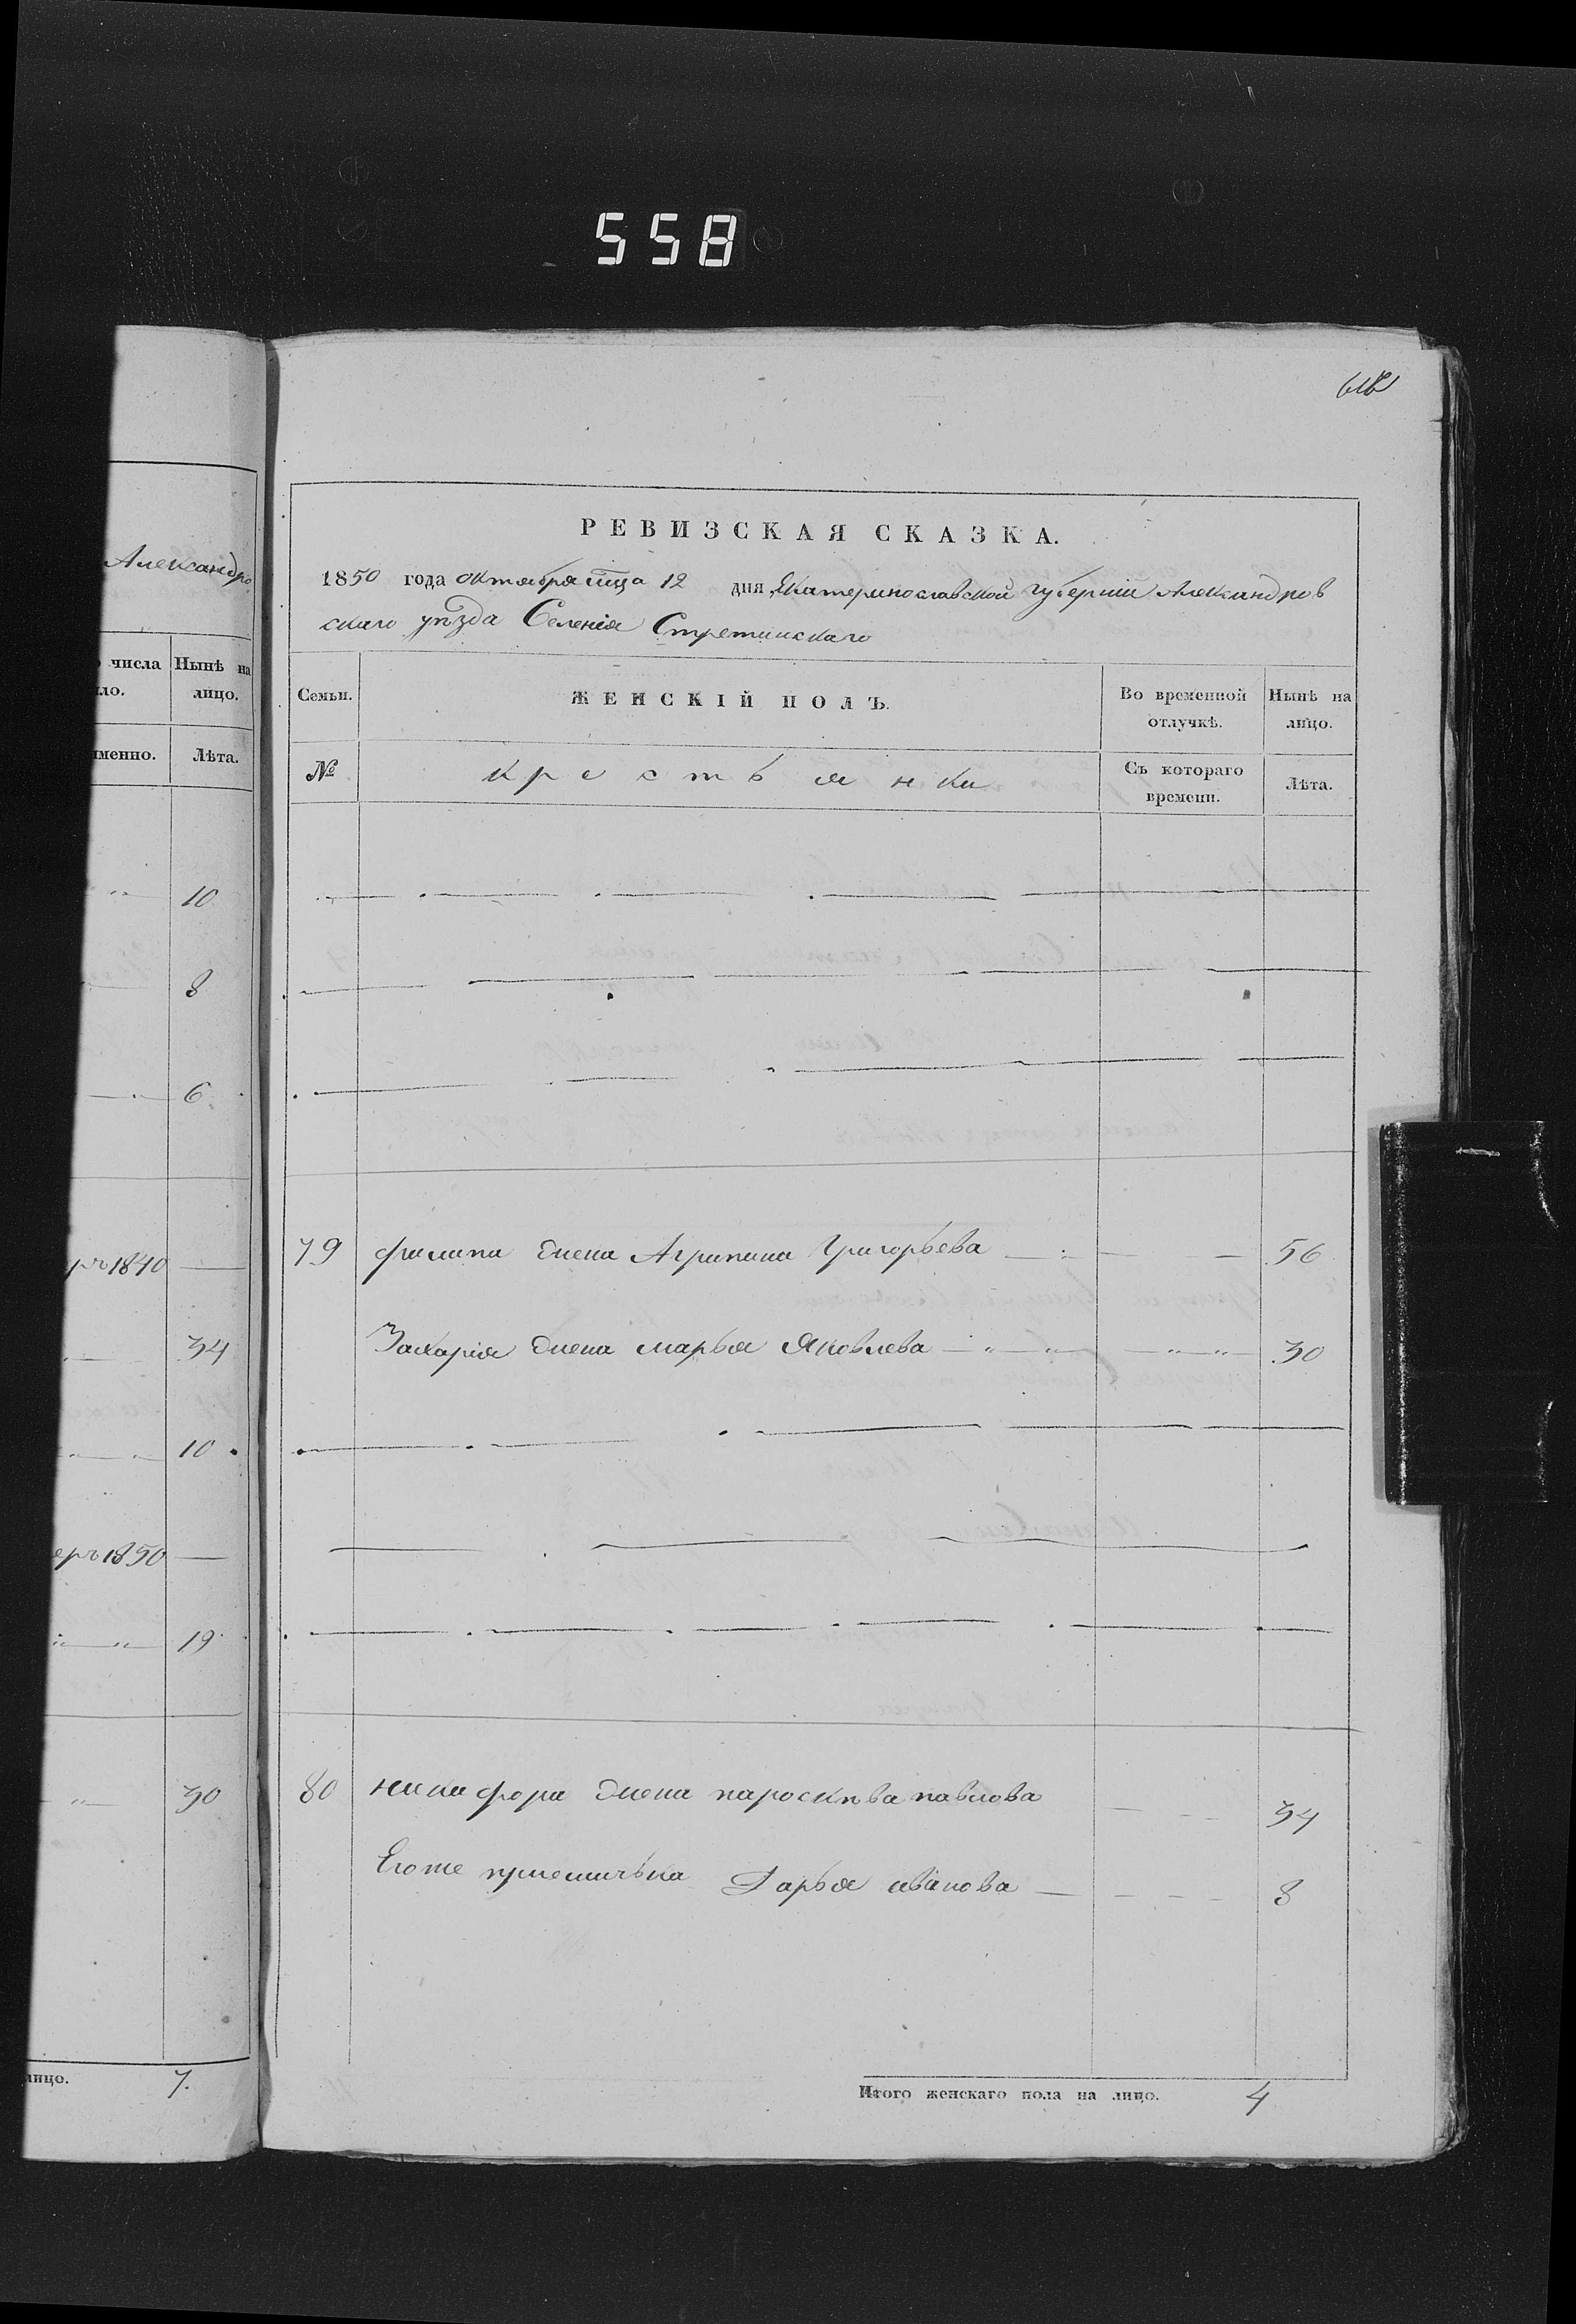 558
Александро
числа Нынѣ на
лицо.
Лѣта.
10
8
6
1840
34
10
1850
19
30
лицо. 7.
РЕВИЗСКАЯ СКАЗКА.
1850 года октября мца 12 дня, Екатеринославской губернии Александров
скаго уѣзда Селенія Стретинскаго
Семьи. ЖЕНСКІЙ ПОЛЪ. Во временной Нынѣ на
отлучкѣ. лицо.
№ крестьянки Съ котораго Лѣта.
времени.
79 филипа жена Агрипина Григорьева 56
Захарія жена марья Яковлева 30
80 никифора жена пароскѣва павлова 34
Егоже приемичька Дарья иванова 8
Итого женскаго пола на лицо. 4